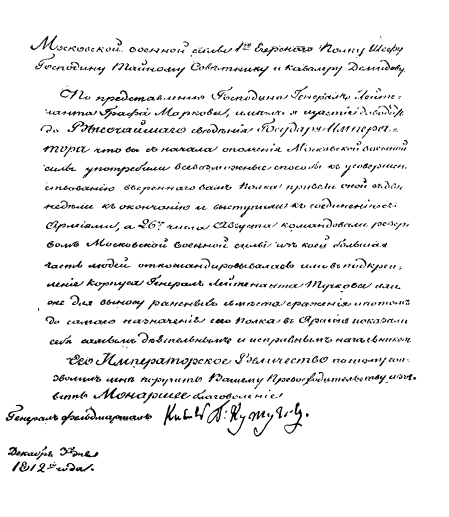 Московской военной силы 1го Егерского Полку Шефу
Господину Тайному Совѣтнику и кавалеру Демидову.
По представленiю Господина Генералъ Лейте-
нанта Графа Моркова, имѣлъ я щастiе доводить
до Высочайшаго свѣденiя Государя Импера-
тора что вы съ начала ополченiя Московской военной
силы употребили всевозможные способы къ усовершен-
ствованiю ввереннаго вамъ Полка привели оной въ две
недѣли къ окончанiю и выступили къ соединенiю съ
Армiями, а 26го числа Августа командовали резер-
вомъ Московской военной силы изъ коей большая
часть людей откомандировывалась или въ подкреп-
ленiе корпуса Генералъ Лейтенанта Тучкова или
же для выносу раненыхъ съ мѣста сраженiя и потомъ
до самаго назначенiя сего Полка въ Армiю показали
себя самымъ дѣятельнымъ и исправнымъ начальникомъ
Его Императорское Величество по тому соиз-
волилъ мнѣ поручить Вашему Превосходительству изъя-
вить Монаршее благоволенiе
Генералъ фельдмаршалъ Кн. Г. Кутузов.
Декабря 3 дня
1812го года.